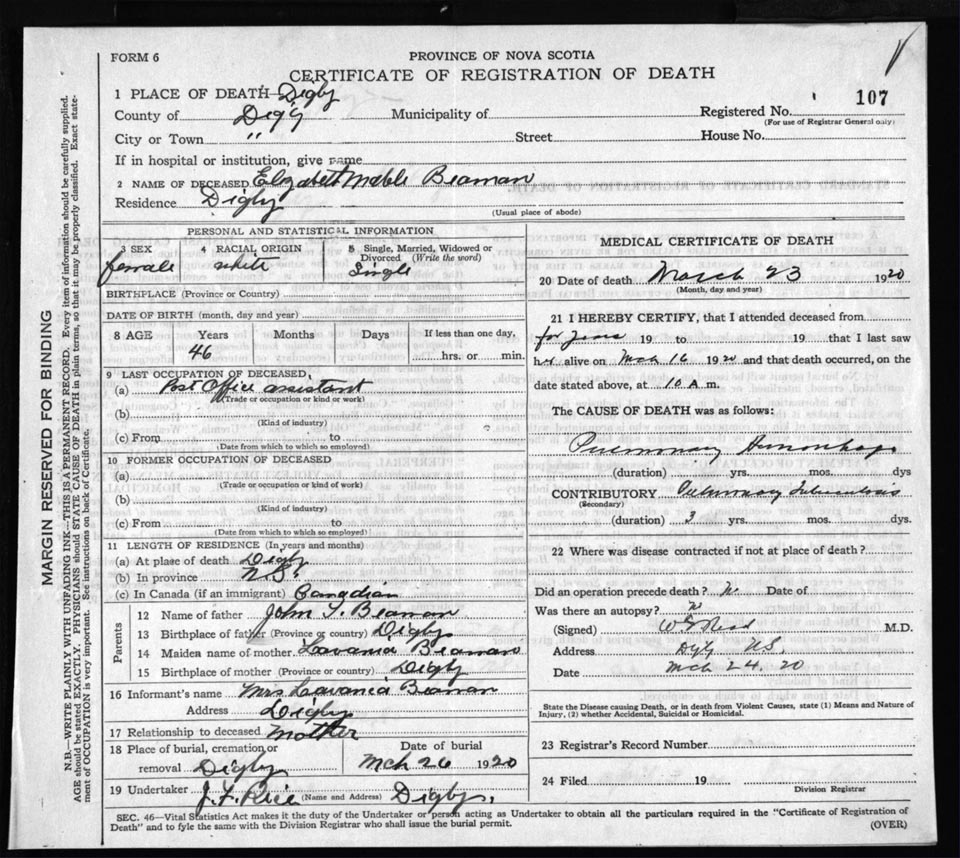 FORM 6
PROVINCE OF NOVA SCOTIA
CERTIFICATE OF REGISTRATION OF DEATH
1 PLACE OF DEATH Digby
County of Digby Municipality of Registered No. 107
(For use of Registrar General only)
City or Town " Street House No.
If in hospital or institution, give name
2 NAME OF DECEASED Elizabeth Mable Beaman
Residence Digby
(Usual place of abode)
PERSONAL AND STATISTICAL INFORMATION
3 SEX 4 RACIAL ORIGIN 5 Single, Married, Widowed or Divorced (Write the word)
female white Single
BIRTHPLACE (Province or Country)
DATE OF BIRTH (month, day and year)
8 AGE Years Months Days If less than one day,
46 hrs. or min.
9 LAST OCCUPATION OF DECEASED,
(a) Post Office assistant
(Trade or occupation or kind or work)
(b)
(Kind of industry)
(c) From to
(Date from which to which so employed)
10 FORMER OCCUPATION OF DECEASED
(a)
(Trade or occupation or kind of work)
(b)
(Kind of industry)
(c) From to
(Date from which to which so employed)
11 LENGTH OF RESIDENCE (In years and months)
(a) At place of death Digby
(b) In province N.S.
(c) In Canada (if an immigrant) Canadian
Parents
12 Name of father John Beaman
13 Birthplace of father (Province or country) Digby
14 Maiden name of mother Lavania Beaman
15 Birthplace of mother (Province or country) Digby
16 Informant's name Mrs Lavania Beaman
Address Digby
17 Relationship to deceased Mother
18 Place of burial, cremation or removal Digby
Date of burial Mch 26 1920
19 Undertaker J. F. Rice (Name and Address) Digby,
MEDICAL CERTIFICATE OF DEATH
20 Date of death March 23 1920
(Month, day and year)
21 I HEREBY CERTIFY, that I attended deceased from
for 19 to 19 that I last saw
her alive on Mch 16 1920 and that death occurred, on the
date stated above, at 10 A m.
The CAUSE OF DEATH was as follows:
Pulmonary Hemorrhage
(duration) yrs. mos. dys
CONTRIBUTORY Pulmonary Tuberculosis
(Secondary)
(duration) 3 yrs. mos. dys.
22 Where was disease contracted if not at place of death?
Did an operation precede death? N Date of
Was there an autopsy? N
(Signed) M.D.
Address Digby N.S.
Date Mch 24. 20
State the Disease causing Death, or in death from Violent Causes, state (1) Means and Nature of
Injury, (2) whether Accidental, Suicidal or Homicidal.
23 Registrar's Record Number
24 Filed 19
Division Registrar
SEC. 46—Vital Statistics Act makes it the duty of the Undertaker or person acting as Undertaker to obtain all the particulars required in the "Certificate of Registration of
Death" and to fyle the same with the Division Registrar who shall issue the burial permit.
(OVER)
MARGIN RESERVED FOR BINDING
N.B.—WRITE PLAINLY WITH UNFADING INK—THIS IS A PERMANENT RECORD. Every item of information should be carefully supplied.
AGE should be stated EXACTLY. PHYSICIANS should STATE CAUSE OF DEATH in plain terms, so that it may be properly classified. Exact statement of OCCUPATION is very important. See instructions on back of Certificate.